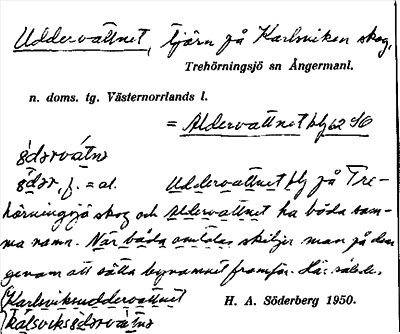 Uddervattnet, tjärn på Karlsviken skog,
Trehörningsjö sn Ångermanl.
n. doms. tg. Västernorrlands l.
= Aldervattnet blg 62 SO
ödərvátnə
ödər, f. = al. Uddervattnet blg på Tre-
hörningsjö skog och Aldervattnet ha båda sam-
ma namn. När båda omtalas skiljer man på dem
genom att sätta bynamnet framför. Här således
Karlsviksuddervattnet
H. A. Söderberg 1950.
kálsviksödərvátnə